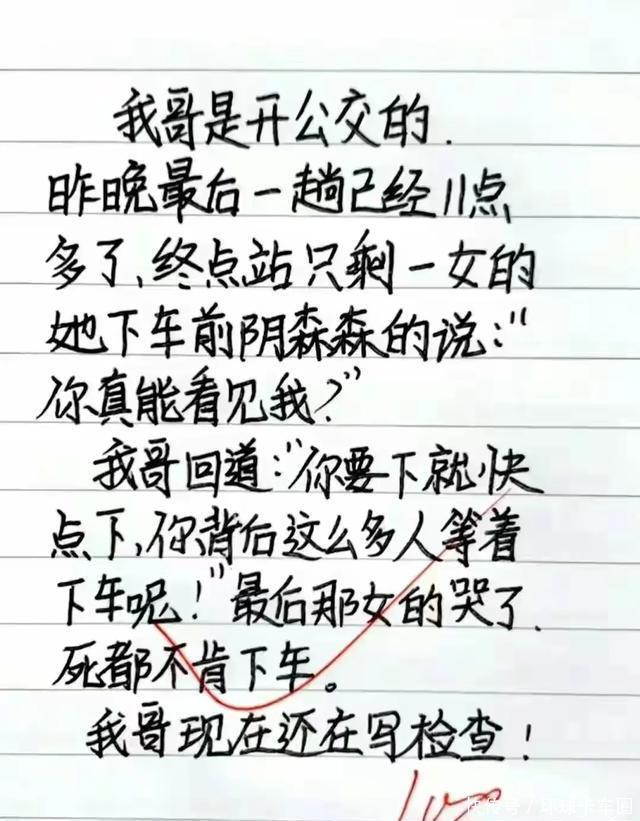 我哥是开公交的.
昨晚最后一趟已经11点
多了、终点站只剩一女的
她下车前阴森森的说:"
你真能看见我?"
我哥回道:"你要下就快
点下,你背后这么多人等着
下车呢!"最后那女的哭了.
死都不肯下车。
我哥现在还在写检查!
100
快传号/环球卡车圈